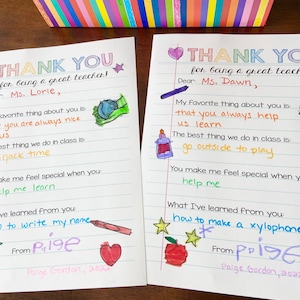 THANK YOU
for being a great teacher!
Ms. Lorie,
favorite thing about you is:
you are always nice
us
best thing we do in class is:
snack time
make me feel special when you
help me learn
I've learned from you:
to write my name
From paige
Paige Gordon, 2022
THANK YOU
for being a great teacher!
Dear Ms. Dawn,
My favorite thing about you is:
that you always help
us learn
The best thing we do in class is:
go outside to play
You make me feel special when you
help me
What I've learned from you:
how to make a xylophone
From paige
Paige Gordon, 202